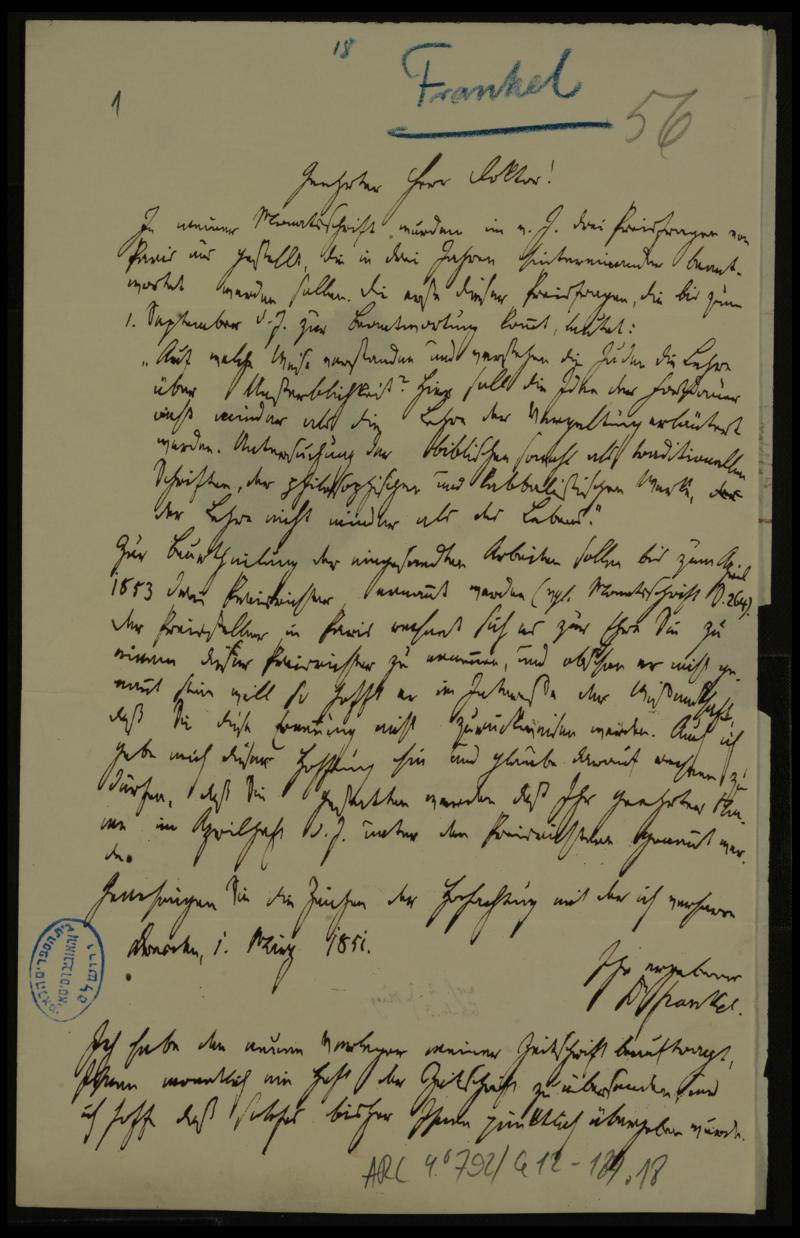 18
Frankel
1
56
Geehrter Herr Doktor!
In meiner Monatsschrift wurden im v. J. drei Preisfragen von
Paris aus gestellt, die in drei Jahren hintereinander beant-
wortet werden sollen. Die erste dieser Preisfragen, die bis zum
1. September d. J. zur Beantwortung kommt, lautet:
„Auf welche Weise verstanden und verstehen die Juden die Lehre
über Unsterblichkeit? Hier soll die Idee der Fortdauer
nicht minder als die Lehre der Vergeltung erläutert
werden. Untersuchung der biblischen sowohl als traditionellen
Schriften, der philosophischen und kabbalistischen Werke,
der Lehre nicht minder als des Lebens."
Zur Beurtheilung der eingesandten Arbeiten sollen bis zum April
1853 drei Preisrichter ernannt werden (vgl. Monatsschrift S. 264).
Der Preissteller in Paris rechnet sich es zur Ehre Sie zu
einem dieser Preisrichter zu ernennen, und obschon er nicht ge-
nannt sein will so hofft er im Interesse der Wissenschaft,
daß Sie diese Ernennung nicht zurückweisen werden. Auch ich
gebe mich dieser Hoffnung hin und glaube darauf rechnen zu
dürfen, daß Sie gestatten werden daß Ihr geehrter Na-
me im Aprilheft d. J. unter den Preisrichtern genannt wer-
de.
Genehmigen Sie die Zeichen der Hochachtung mit der ich verharre
Dresden, 1. März 185
Ihr ergebener
Dr Frankel.
Ich habe den neuen Verleger meiner Zeitschrift beauftragt,
Ihnen monatlich ein Heft der Zeitschrift zu übersenden, und
ich hoffe daß solches bisher Ihnen pünktlich übergeben wurde.
ARC 4° 792/ G 12 - 18